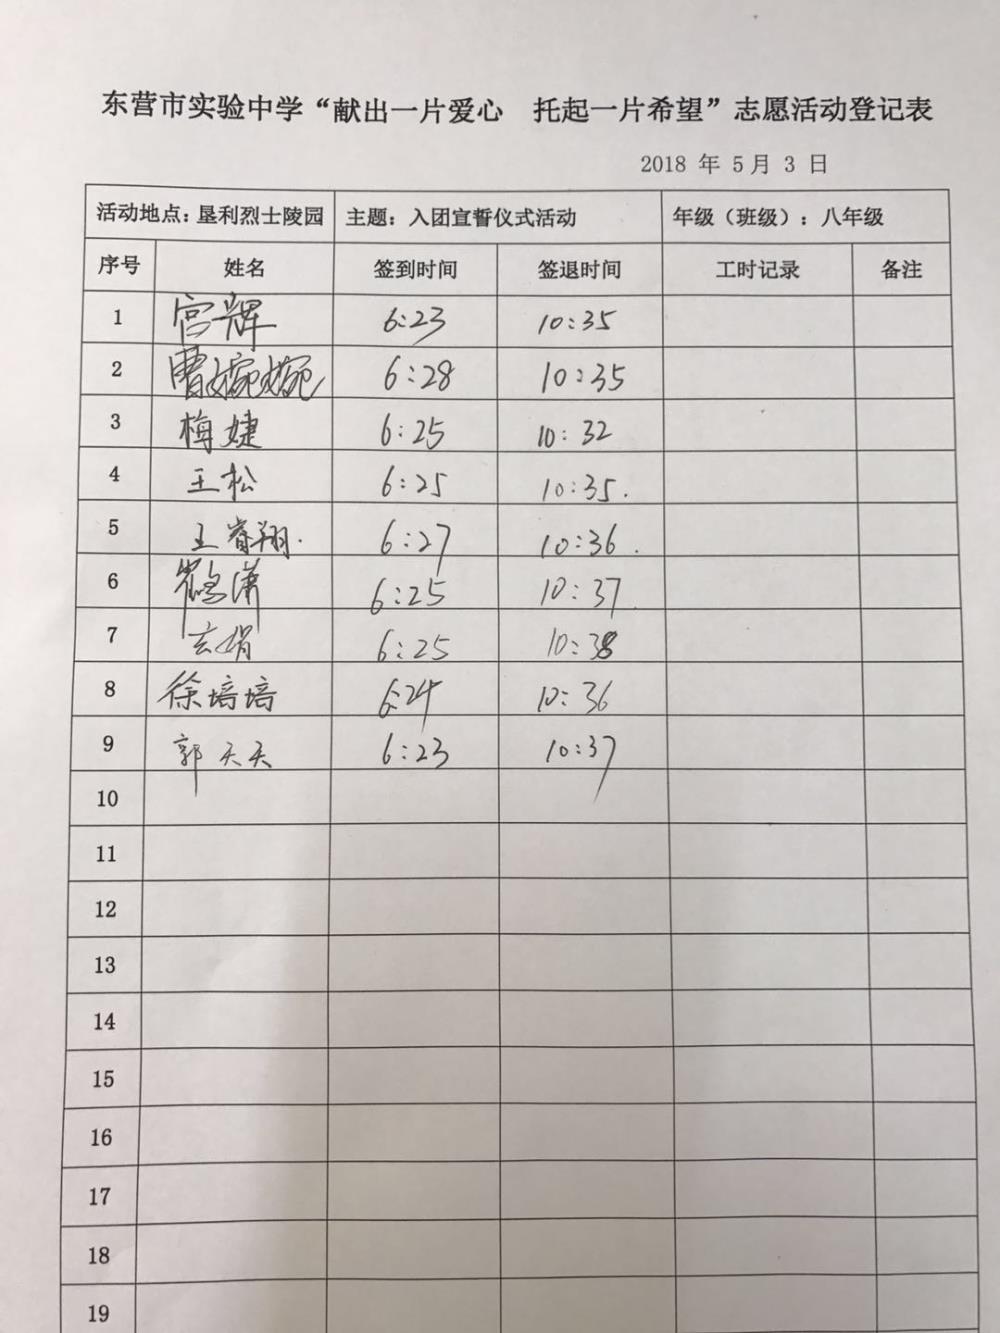 东营市实验中学“献出一片爱心 托起一片希望”志愿活动登记表
2018 年 5 月 3 日
活动地点：垦利烈士陵园 主题：入团宣誓仪式活动 年级（班级）：八年级
序号 姓名 签到时间 签退时间 工时记录 备注
1 宫辉 6:23 10:35
2 曹婉婉 6:28 10:35
3 梅婕 6:25 10:32
4 王松 6:25 10:35.
5 王睿翔. 6:27 10:36.
6 6:25 10:37
7 玄娟 6:25 10:38
8 徐培培 6:24 10:36
9 郭天天 6:23 10:37
10
11
12
13
14
15
16
17
18
19